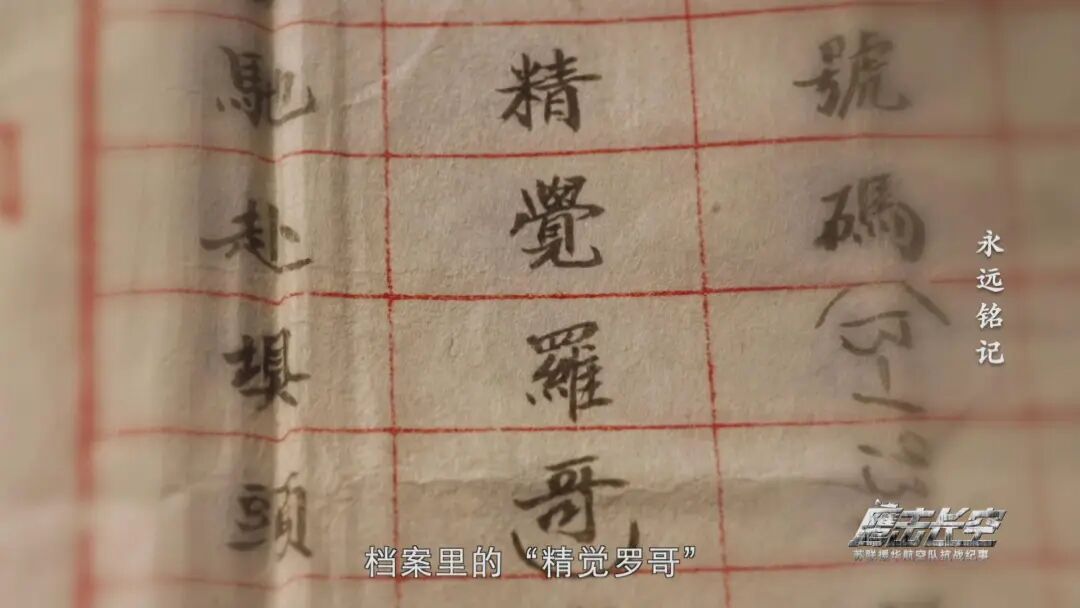 號碼
精覺羅哥)
馳赴垻頭
永远铭记
鹰击长空
苏联援华航空队抗战纪事
档案里的“精觉罗哥”